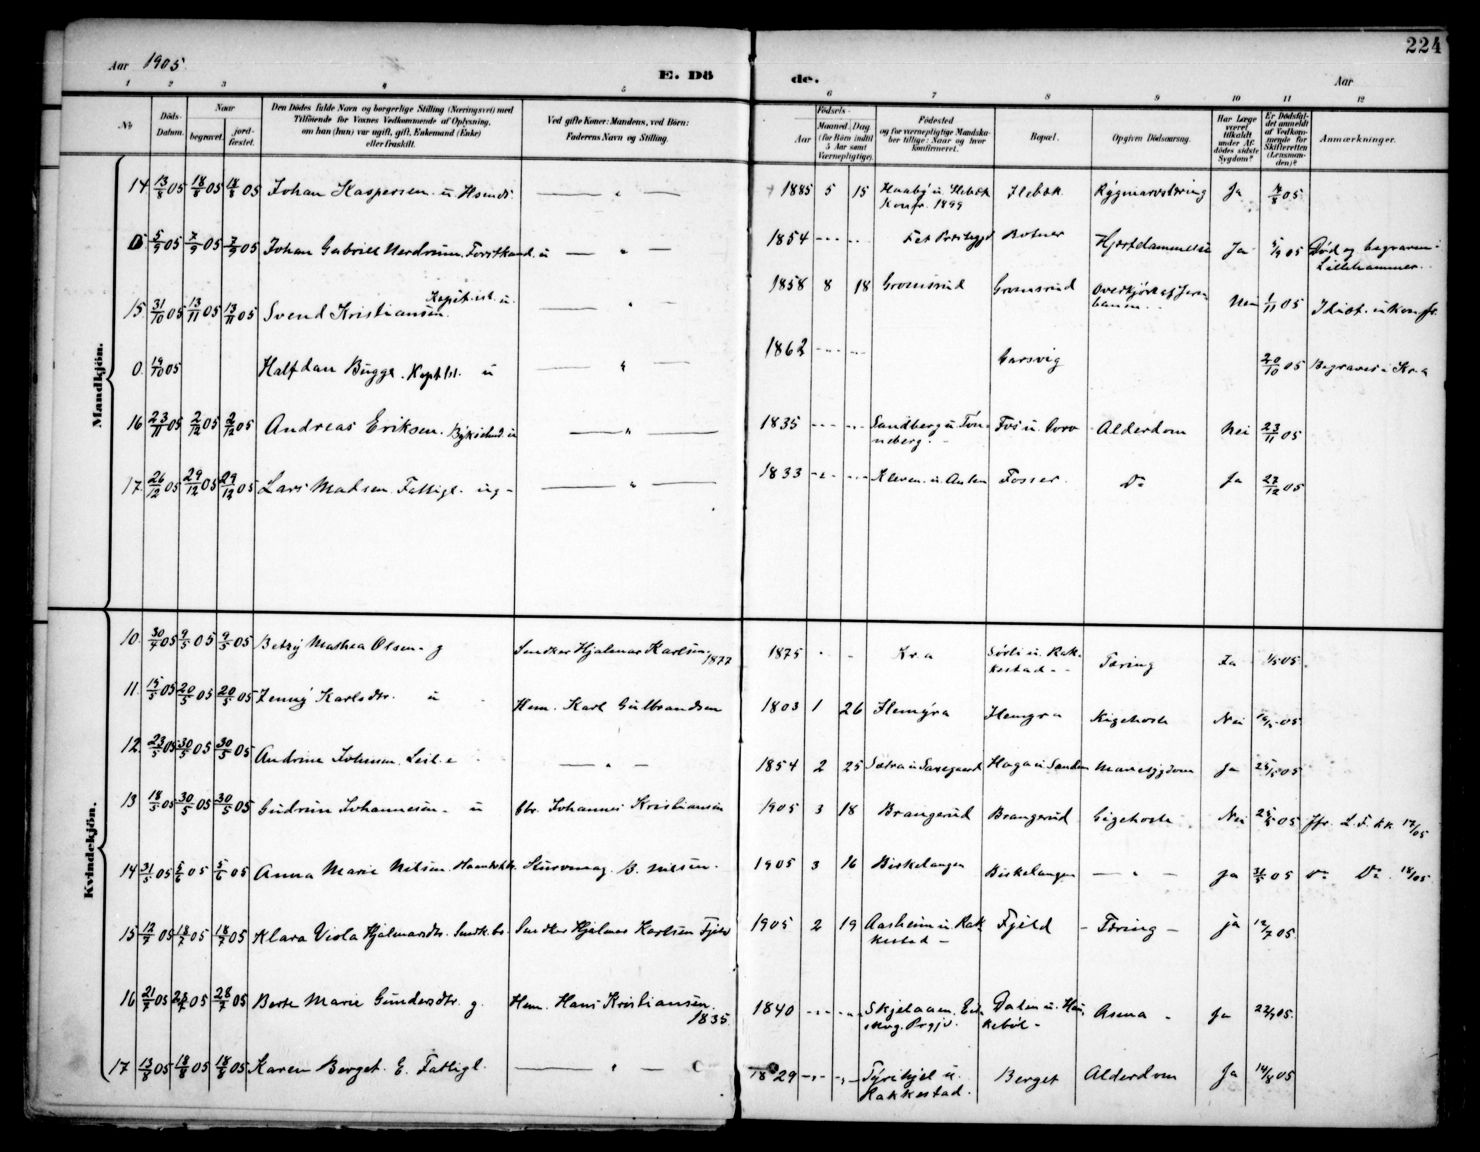 224
Aar 1905.
E. Döde.
Aar
1 2 3 4 5 6 7 8 9 10 11 12
No
Döds-Datum.
Naar
begravet.
jord-fæstet.
Den Dödes fulde Navn og borgerlige Stilling (Næringsvei) med
Tilföiende for Voxnes Vedkommende af Oplysning,
om han (hun) var ugift, gift, Enkemand (Enke)
eller fraskilt.
Ved gifte Koner: Mandens, ved Börn:
Faderens Navn og Stilling.
Födsels-
Aar
Maaned Dag
(for Börn indtil
5 Aar samt
Værnepligtige).
Födested
og for værnepligtige Mandska-
ber tillige: Naar og hvor
konfirmeret.
Bopæl.
Opgiven Dödsaarsag.
Har Læge
været
tilkaldt
under Af-
dödes sidste
Sygdom?
Er Dödsfal-
det anmeldt
af Vedkom-
mende for
Skifteretten
(Lensman-
den)?
Anmærkninger.
Mandkjön.
14 13/8 05 18/8 05 18/8 05 Johan Kaspersen u Hsmds. — " — 1885 5 15 Haaby u. Hebæk Konfr. 1899 Hebæk Rygmarvstæring Ja 14/8 05.
5/9 05 7/9 05 7/9 05 Johan Gabriel Nerdrum, Forstkand. u — " — 1854 --- --- Fet Præstegjd Botner Ja 5/9 05 Död og begraven i Lillehammer.
15. 31/10 05 13/11 05 13/11 05 Svend Kristiansen u — " — 1858 8 18 Gromsrud Gromsrud Overkjört af Jernbanen.. Nei 1/11 05 Idiot. ukonfr.
0. 19/10 05 Halfdan Bugge. u — " — 1862 --- --- 20/10 05 Begraves i Kr.a
16 23/11 05 2/12 05 2/12 05 Andreas Eriksen. u — " — 1835 --- --- Sandberg u. Tönneberg. Fos u. Alderdom Nei 23/11 05
17. 26/12 05 29/12 05 29/12 05 Lars Madsen Fattigl. ug- — " — 1833 --- --- Kleven. u. Fosser. Do Ja 27/12 05
Kvindekjön.
10. 30/4 05 9/5 05 9/5 05 Betzy Mathea Olsen. g Snedker Hjalmar Karlsen. 1877 1875 - - Kr.a u. Rakkestad-- Tæring Ja 1/5 05.
11. 15/5 05 20/5 05 20/5 05 Jenny Karlsdtr. u Hem. Karl Gulbrandsen 1903 1 26 Hemyra Hemyra Kigehoste Nei 05
12. 23/5 05 30/5 05 30/5 05 Andrine Johnsen. — " — 1854 2 25 Sætra u Haga u Mavesygdom Ja 25/5 05
13 18/5 05 30/5 05 30/5 05 Gudrun Johannesen- u fbr. Johannes Kristiansen 1905 3 18 Brangerud Brangerud Gigehoste Nei 05 Jfr. L. F. kk 05
14 31/5 05 5/6 05 5/6 05 Anna Marie Nilsen. Kurvmag. B. Nilsen. 1905 3 16 Biskelangen Biskelangen — " — ja 31/5 05 Do Do 05.
15 12/7 05 18/7 05 18/7 05 Klara Viola Hjalmarsdtr. Snedk.bs. Snedker Hjalmar Karlsen Fjeld 1905 2 19 Aasheim u Rakkestad - Fjeld - Tæring - ja 12/7 05.
16 21/7 05 28/7 05 28/7 05 Berte Marie Gundersdtr. g. Hem. Hans Kristiansen. 1835. 1840 --- --- Skjelaaen. Eidskog Prgjd. Dalen u. Haukeböl- Asma - Ja 22/7 05.
17 13/8 05 18/8 05 18/8 05 Karen Berget. E. Fattigl. — " — 1829 --- --- Tyrihjel u. Rakkestad. Berget Alderdom Ja 14/8 05